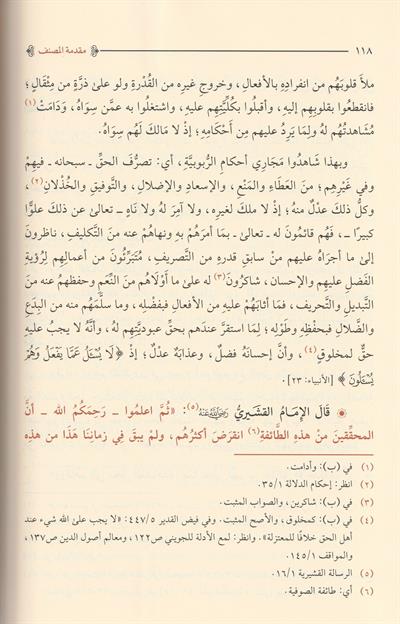 ١١٨ مقدمة المصنف
ملأ قلوبَهُم من انفرادِهِ بالأفعالِ، وخروجِ غيرِه من القُدْرةِ ولو على ذَرَّةٍ من مِثْقَالٍ؛
فانقطَعُوا بقلوبِهم إليهِ، وأقبلُوا بكُلِّيَّتِهم عليهِ، واشتغلُوا به عمَّن سِوَاهُ، وَدَامَتْ(١)
مُشَاهدتُهُم لهُ ولِمَا يَرِدُ عليهم مِن أَحْكَامِهِ؛ إذْ لا مَالكَ لَهُم سِوَاهُ.
وبهذا شَاهَدُوا مَجَارِي أحكامِ الرُّبوبيَّةِ، أي: تصرُّفَ الحقِّ ـ سبحانه ـ فيهِمْ
وفي غَيْرِهِم؛ منَ العَطَاءِ والمَنْعِ، والإسعادِ والإضلالِ، والتَّوفيقِ والخُذْلانِ(٢)،
وكلُّ ذلكَ عدْلٌ منهُ؛ إذْ لا ملكَ لغيرِه، ولا آمِرَ لهُ ولا نَاهٍ ـ تعالى عن ذلكَ علوًّا
كبيرًا ـ، فَهُم قائمُونَ له ـ تعالى ـ بما أمرَهُمْ بهِ ونهاهُمْ عنه منَ التَّكليفِ، ناظرونَ
إلى ما أجراهُ عليهِم منْ سابقِ قدرهِ من التَّصريفِ، مُتَبَرِّئُونَ من أعمالِهِم لِرُؤيةِ
الفَضلِ عليهِم والإحسانِ، شاكرُونَ(٣) له على ما أَوْلَاهُم منَ النِّعَمِ وحفظهُم عنه منَ
التَّبديلِ والتَّحريفِ، فمَا أثابَهُم عليهِ من الأفعالِ فبفضْلِه، وما سلَّمَهُم منه من البِدَعِ
والضَّلالِ فبحفْظِه وطَوْلِه؛ لِمَا استقرَّ عندَهم بحقِّ عبوديَّتِهم لهُ، وأنَّهُ لا يجبُ عليهِ
حقٌّ لمخلوقٍ(٤)، وأنَّ إحسانَهُ فضلٌ، وعذابَهُ عدْلٌ؛ إذْ ﴿لَا يُسْـَٔلُ عَمَّا يَفْعَلُ وَهُمْ
يُسْـَٔلُونَ﴾ [الأنبياء: ٢٣].
قَالَ الإمَامُ القشَيريُّ رَضِيَ اللَّهُ عَنْهُ(٥): «ثُمَّ اعلمُوا ـ رَحِمَكُمُ الله ـ أنَّ
المحقِّقينَ منْ هذهِ الطَّائفةِ(٦) انقرَضَ أكثرُهُم، ولمْ يبقَ في زمانِنَا هَذَا من هذِهِ
(١) في (ب): وأدامت.
(٢) انظر: إحكام الدلالة ٣٥/١.
(٣) في (ب): شاكرين، والصواب المثبت.
(٤) في (ب): كمخلوق، والأصح المثبت. وفي فيض القدير ٤٤٧/٥: «لا يجب على الله شيء عند
أهل الحق خلافًا للمعتزلة». وانظر: لمع الأدلة للجويني ص١٢٢، ومعالم أصول الدين ص١٣٧،
والمواقف ١٤٥/١.
(٥) الرسالة القشيرية ١٦/١.
(٦) أي: طائفة الصوفية.